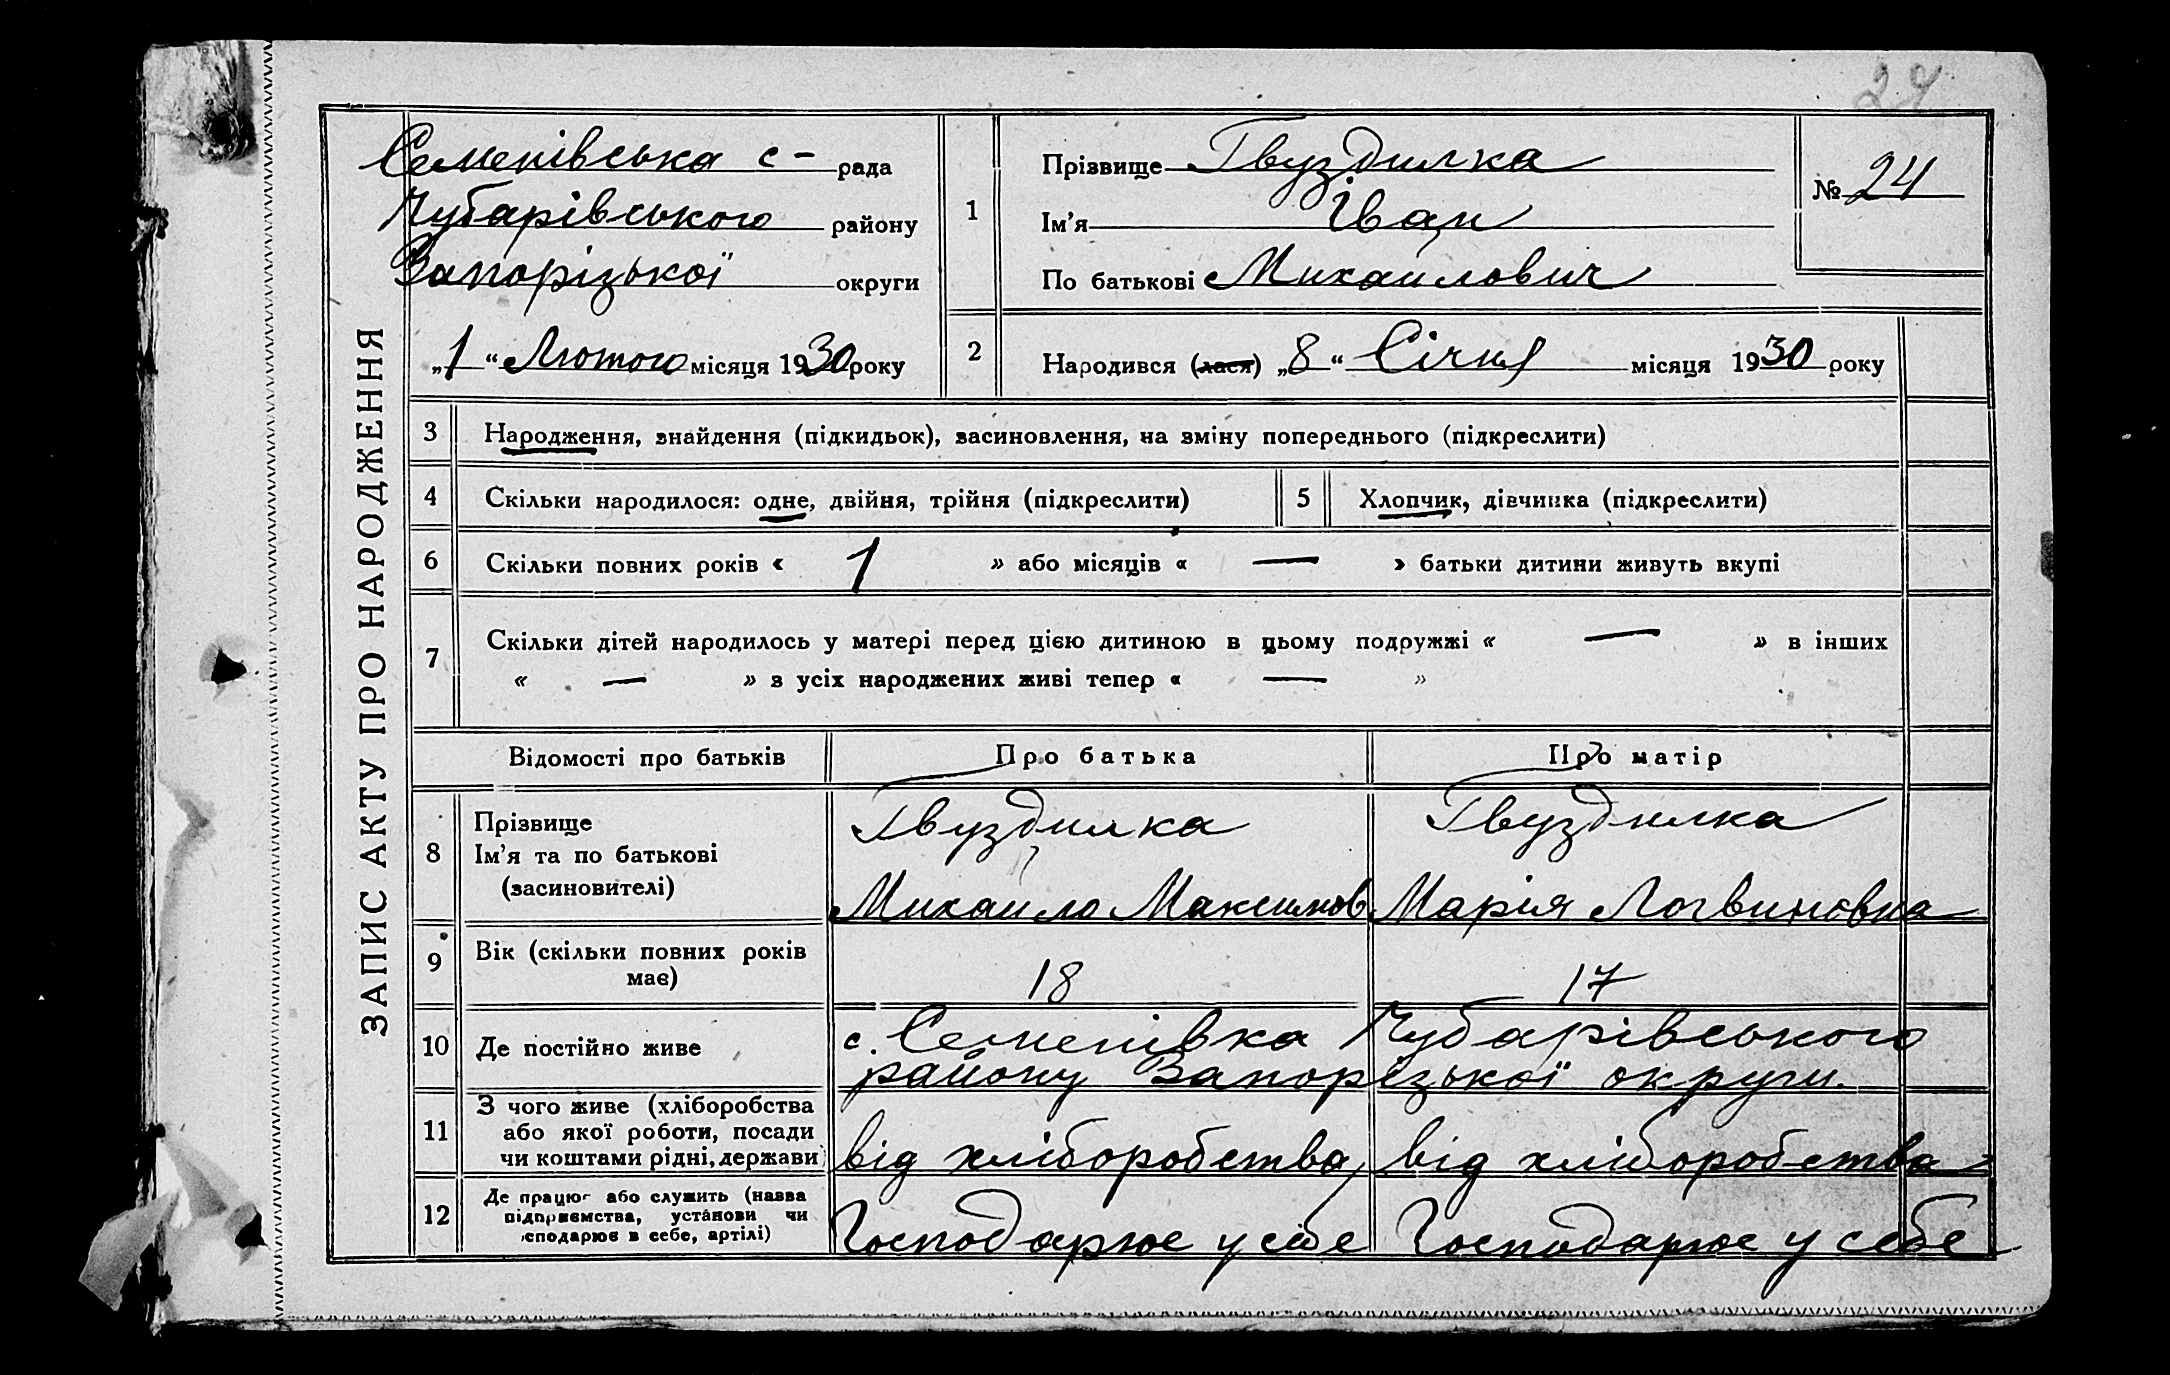 29
ЗАПИС АКТУ ПРО НАРОДЖЕННЯ
Семенівська с - рада
Чубарівського району
Запорізької округи
„1“ Лютого місяця 1930 року
1 Прізвище Гвуздилка
Ім'я Іван
По батькові Михайлович
№ 24
2 Народився (лася) „8“ Січня місяця 1930 року
3 Народження, знайдення (підкидьок), засиновлення, на зміну попереднього (підкреслити)
4 Скільки народилося: одне, двійня, трійня (підкреслити) 5 Хлопчик, дівчинка (підкреслити)
6 Скільки повних років « 1 » або місяців « — » батьки дитини живуть вкупі
7 Скільки дітей народилось у матері перед цією дитиною в цьому подружжі « — » в інших
« — » з усіх народжених живі тепер « — »
Відомості про батьків Про батька Про матір
8 Прізвище
Ім'я та по батькові
(засиновителі)
Гвуздилка
Михайло Максимов
Гвуздилка
Марія Логвиновна
9 Вік (скільки повних років
має)
18 17
10 Де постійно живе
с. Семенівка Чубарівського
району Запорізької округи.
11 З чого живе (хліборобства
або якої роботи, посади
чи коштами рідні, держави)
від хліборобства, від хліборобства
12 Де працює або служить (назва
підприємства, установи чи
сподарює в себе, артілі)
Господарює у себе Господарює у себе